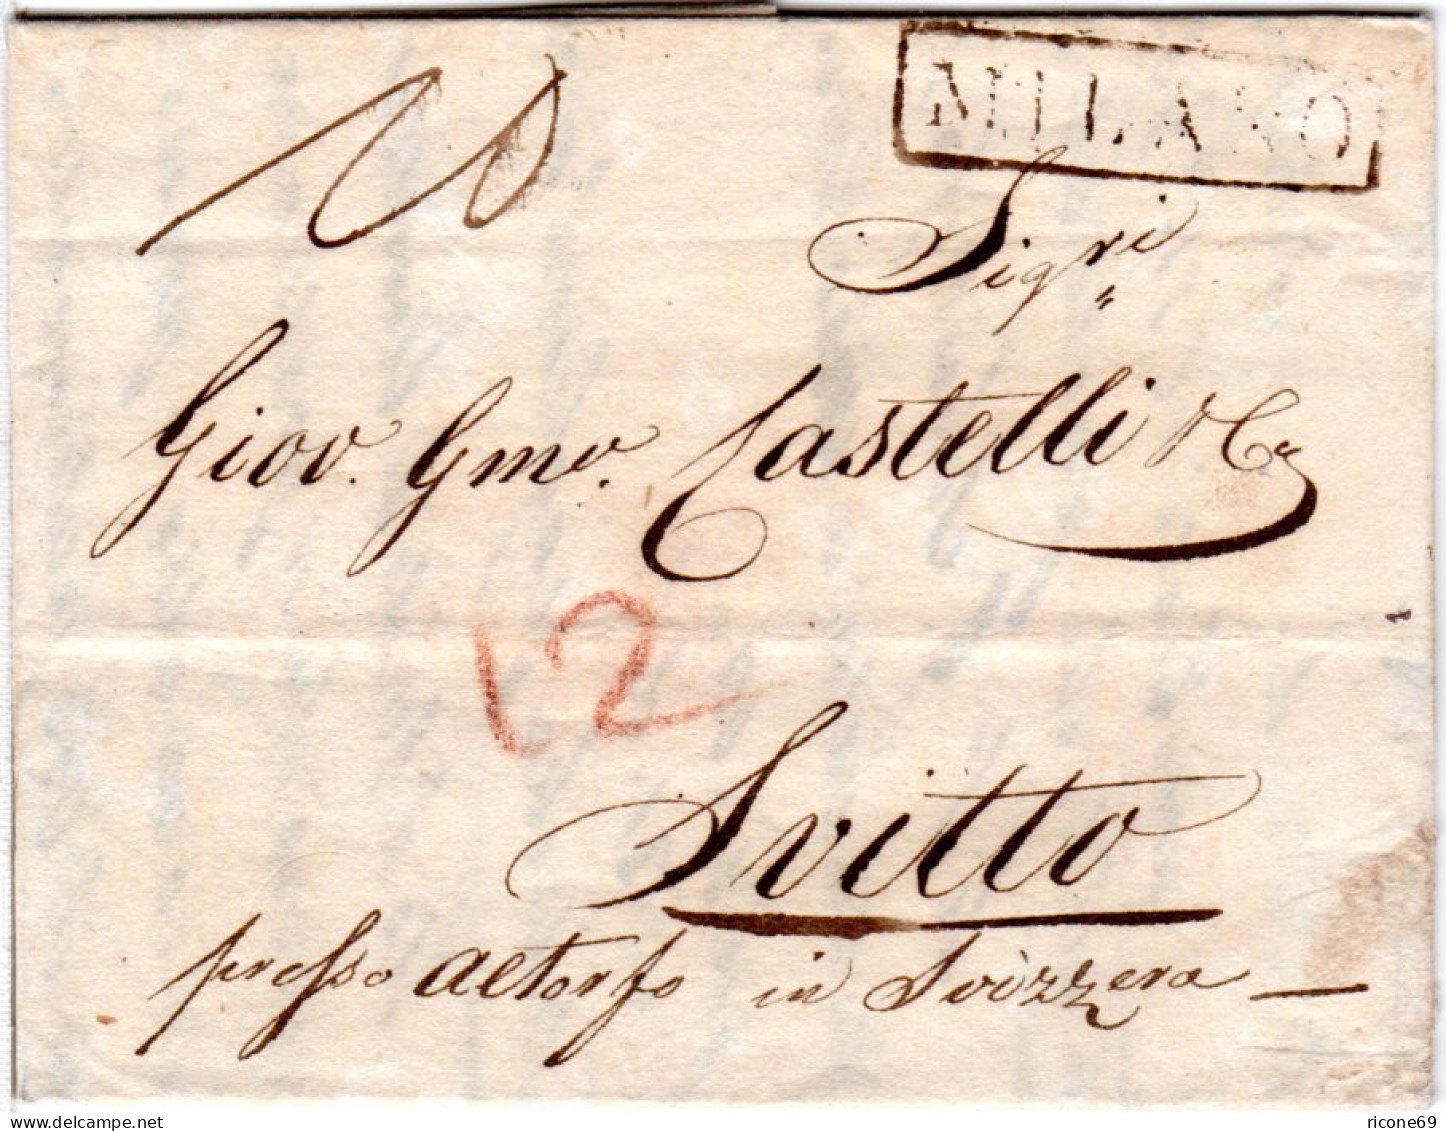 MILANO
Sigri
Giov. Gmo. Castelli & Co
12
Svitto
presso Altorfo in Svizzera
ricone69